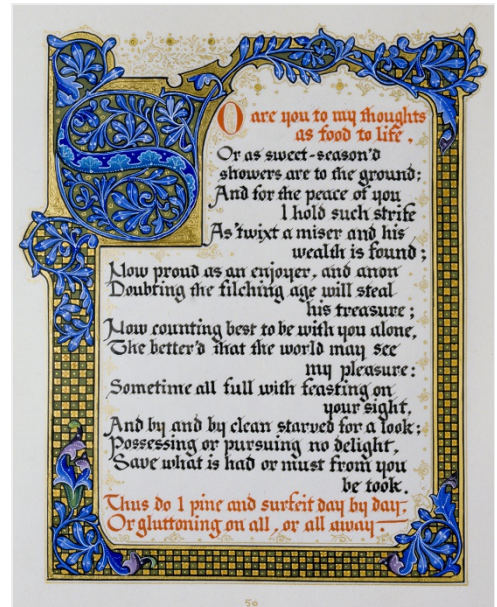 SO are you to my thoughts
as food to life,
Or as sweet-season'd
showers are to the ground;
And for the peace of you
I hold such strife
As 'twixt a miser and his
wealth is found;
Now proud as an enjoyer, and anon
Doubting the filching age will steal
his treasure;
Now counting best to be with you alone,
The better'd that the world may see
my pleasure:
Sometime all full with feasting on
your sight,
And by and by clean starved for a look;
Possessing or pursuing no delight,
Save what is had or must from you
be took.
Thus do I pine and surfeit day by day.
Or gluttoning on all, or all away.
50